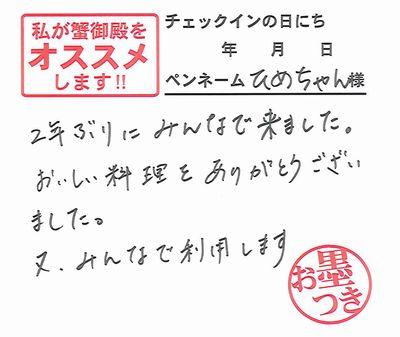 私が蟹御殿を
オススメ
します!!
チェックインの日にち
年 月 日
ペンネーム ひめちゃん 様
2年ぶりに みんなで来ました。
おいしい料理を ありがとうござい
ました。
又、みんなで利用します
お墨つき